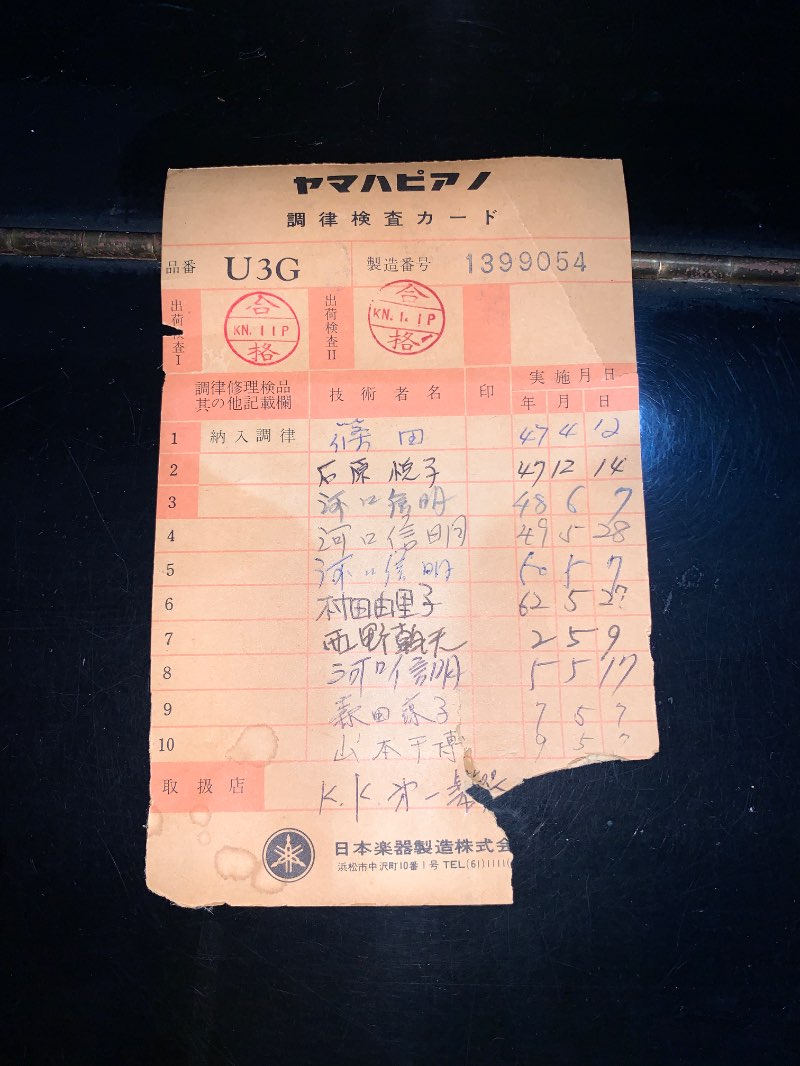 ヤマハピアノ
調律検査カード
品番 U3G 製造番号 1399054
出荷検査I 合格 KN.11P 出荷検査II 合格 KN.1.1P
調律修理検品其の他記載欄 技術者名 印 実施月日
年 月 日
1 納入調律 篠田 47 4 12
2 石原悦子 47 12 14
3 河口信明 48 6 7
4 河口信明 49 5 28
5 河口信明 50 5 7
6 村田由里子 62 5 27
7 西野 夫 2 5 9
8 河口信明 5 5 17
9 森田 子 7 5 7
10 山本千博 9 5
取扱店 K.K.第一
日本楽器製造株式会
浜松市中沢町10番1号 TEL(61)1111(